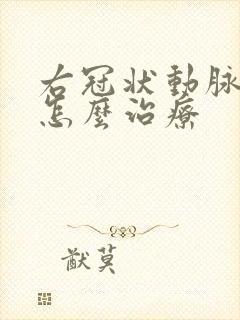 右冠状動脉
怎麼治療
猷莫